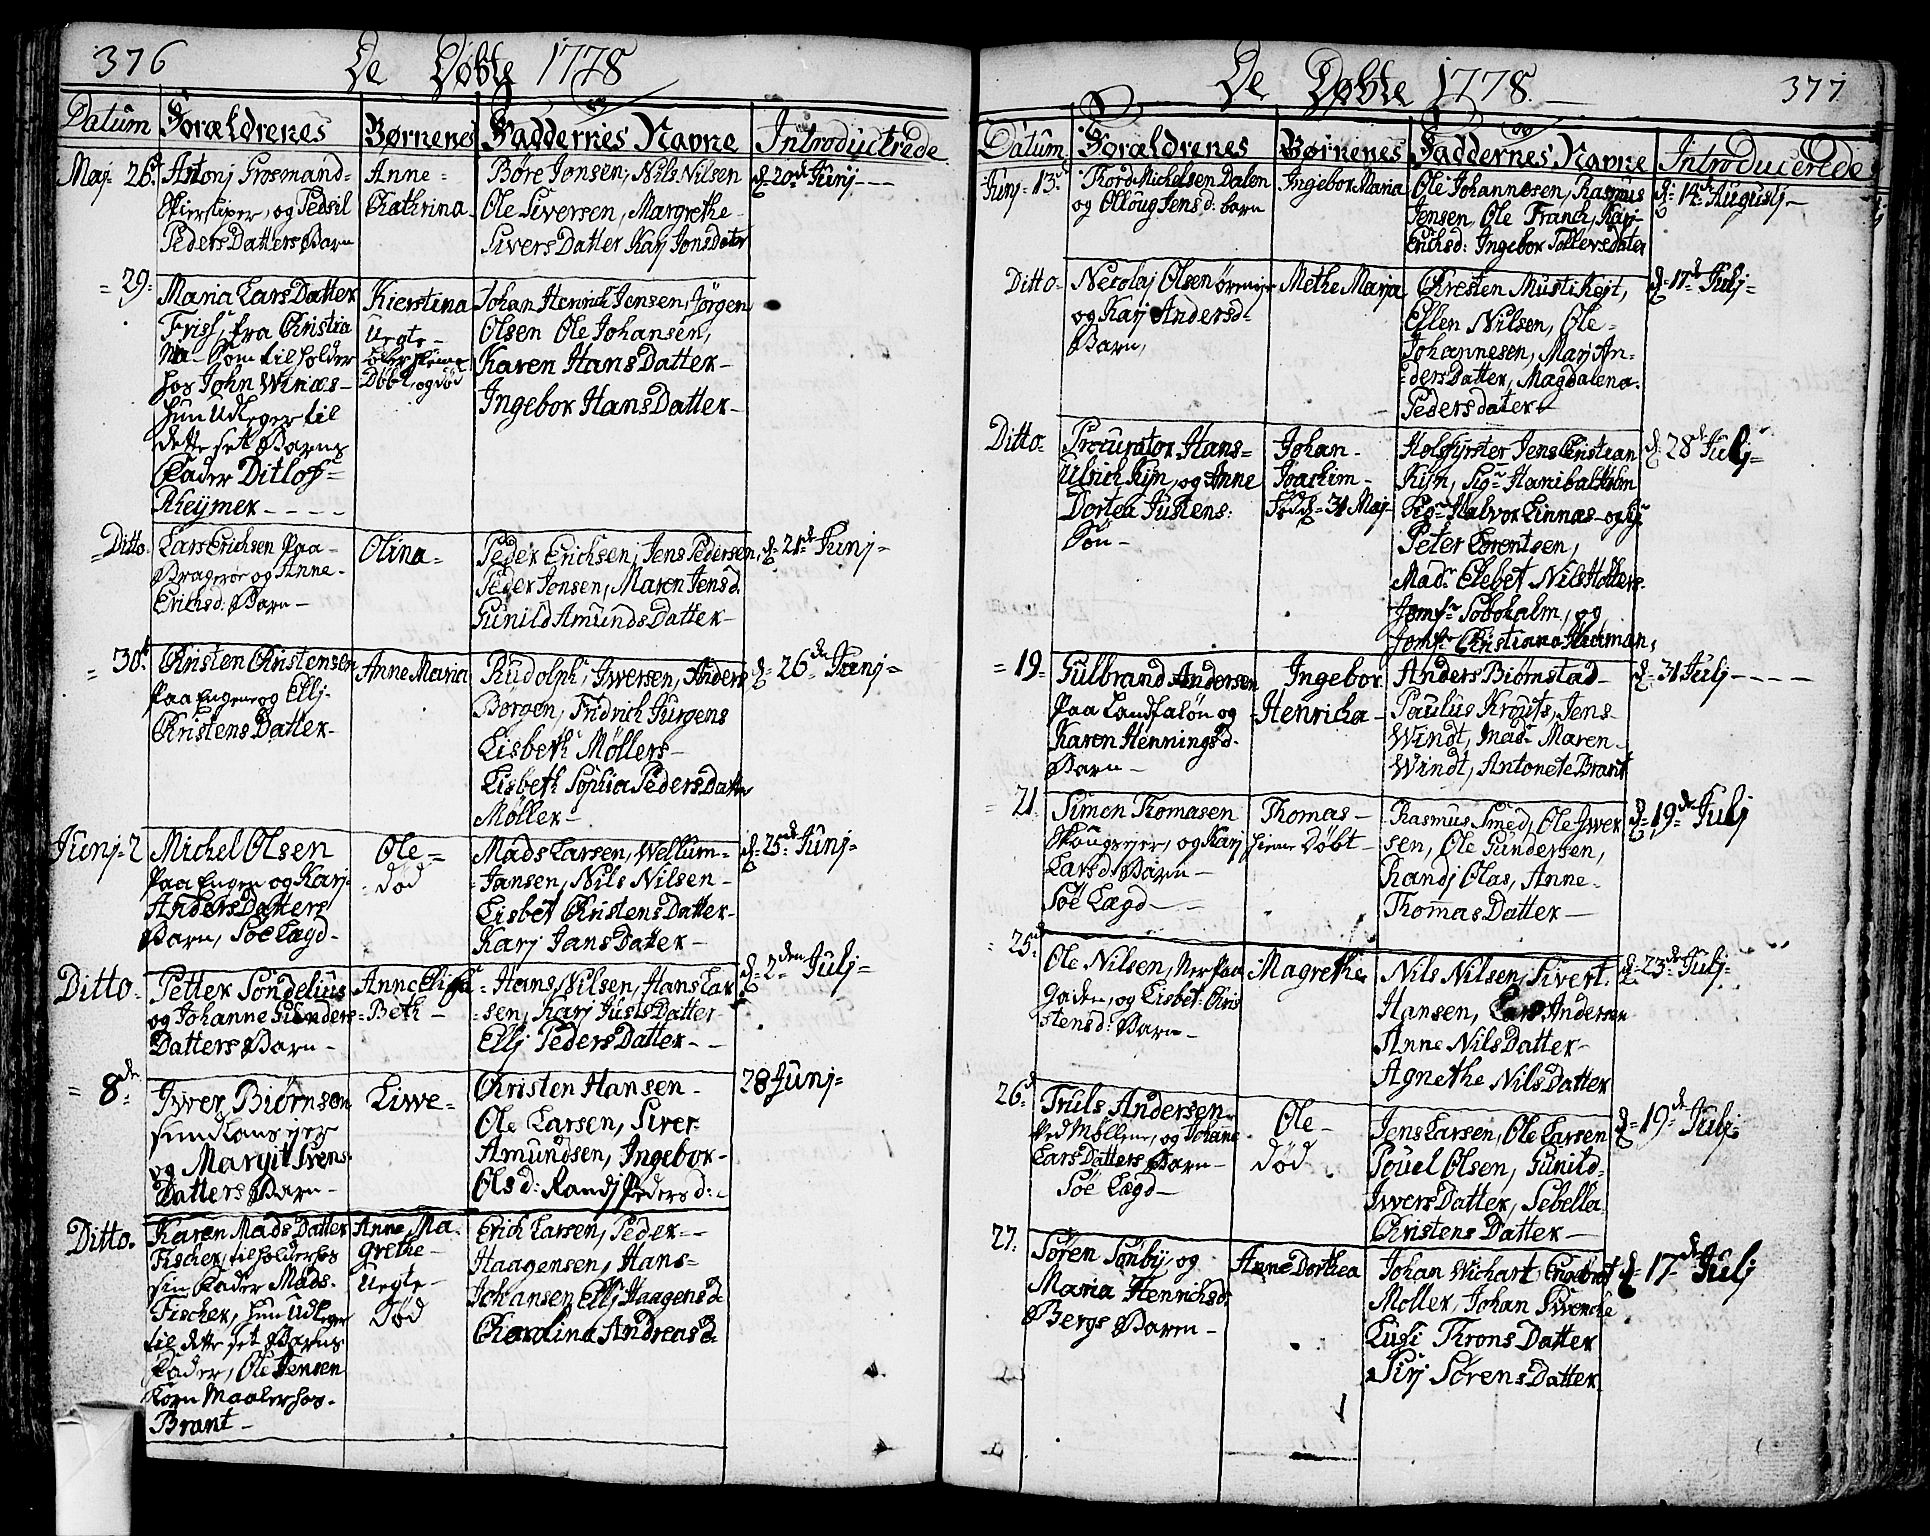 376
De Døbte 1778
Datum Forældrenes Børnenes Faddernes Navne Introductrede
Maj 26 Antonj Grosmand
Skiersliper, og Pedsil
Peders Datters Barn
Anne
Cathrina
Børe Jonsen, Nils Nilsen
Ole Siversen, Margrethe
Sivers Datter Karj Jonsdater
d 20de Junj
29
Maria Lars Datter
Frish, fra Christia
na Som til holder
hos John Winæs
hun Udleger til
dette set Barns
Fader Ditlof
Rheymer
Kierstina
Uegte
Døbt, og død
Johan Henrich Jensen, Jørgen
Olsen Ole Johansen,
Karen Hans Datter
Ingebor Hans Datter
Ditto
Lars Erichsen Paa
Bragerøe og Anne
Erichsd: Barn
Olina
Peder Erichsen, Jens Pedersen
Peder Jonsen, Maren Jensd.
Gunild Amunds Datter
d 21de Junj
30
Christen Christensen
Paa Engen og Ellj
Christens Datter
Anne Maria
Rudolph Iwersen, Anders
Borgen, Fridrich Jurgens
Lisbeth Møllers
Lisbeth Sophia Peders Datter
Møller
d 26de Junj
Junj 2
Michel Olsen
Paa Engen og Karj
Anders Datters
Barn, Søe Lægd
Ole
død
Mads Larsen, Wellum
Jansen, Nils Nilsen
Lisbet Christens Datter
Karj Jans Datter
d 25de Junj
Ditto
Petter Søndelius
og Johanne Gunders
Datters Barn
Anne Elisa
Beth
Hans Nilsen, Hans Lar
sen, Karj Justs Datter
Ellj Peders Datter
d 2den Julj
8de
Iwer Biørnsen
og Margit Svens
Datters Barn
Liwe
Christen Hansen
Ole Larsen, Siver
Amundsen, Ingebor
Olsd: Randj Pedersd:
28 Junj
Ditto
Karen Mads Datter
Fischer, til holder hos
sin Fader Mads
Fischer, hun Udleger
til dette set Barns
Fader, Ole Jensen
Korn Maaler hos
Brant
Anne Ma
grethe
Uegte
Død
Erich Larsen, Peder
Haagensen, Hans
Johansen Ellj Haagensd
Charlina Andreasd
377
De Døbte 1778
Datum Forældrenes Børnenes Faddernes Navne Introducerede
Junj 13
Thord Michelsen Dalen
og Olloug Jensd: barn
Ingebor Maria
Ole Johannesen, Rasmus
Jensen, Ole Franch, Karj
Erichsd: Ingebor Tollersdater
d 14de Augustj
Ditto
Necolaj Olsen
og Karj Andersd
Barn,
Methe Maria
Christen Mustikejt,
Ellen Nilsen, Ole
Johannesen, Marj An
ders Datter, Magdalena
Pedersdater
d 17de Julj
Ditto
Procurator Hans
Ulrich Kyn, og Anne
Dortea Justens
Søn
Johan
Joachim
Fød d 31 Maj
Holsfyrster Jens Cristian
Kyn, Sigr Hanibal Holm
Sigr Halvor Linnæs og
Peter Lorentsen,
Madr Elebet Nils Holters
Jomfr Søboholm, og
Jomfr Christiana Heetman
d 28de Julj
19
Gulbrand Andersen
Paa Landfaløn og
Karen Henningsd
Barn
Ingebor
Henricha
Anders Biørnstad
Paulus Krouts, Jens
Windt, Mad Maren
Windt, Antonete Brant
d 31 Julj
21
Simon Thomasen
Skougsejer, og Karj
Larsd Barn
Søe Lægd
Thomas
hieme Døbt
Rasmus Smed, Ole Iwer
sen, Ole Gundersen,
Randj Olas, Anne
Thomas Datter
d 19de Julj
25
Ole Nilsen, Ner Paa
Gaden, og Lisbet Chri
stensd: Barn
Magrethe
Nils Nilsen, Sivert
Hansen, Lars Andersen
Anne Nils Datter
Agnethe Nils Datter
d 23de Julj
26
Truls Andersen
Ved Møllene, og Johanne
Lars Datters Barn
Søe Lægd
Ole
død
Jens Larsen, Ole Larsen
Pouel Olsen, Gunild
Iwers Datter, Sebella
Christens Datter
d 19de Julj
27
Søren Sønby, og
Maria Henrichsd
Bergs Barn
Anne Dorthea
Johan Wichart Engebret
Møller, Johan Swencke
Lusi Throns Datter
Sirj Sørens Datter
d 17de Julj